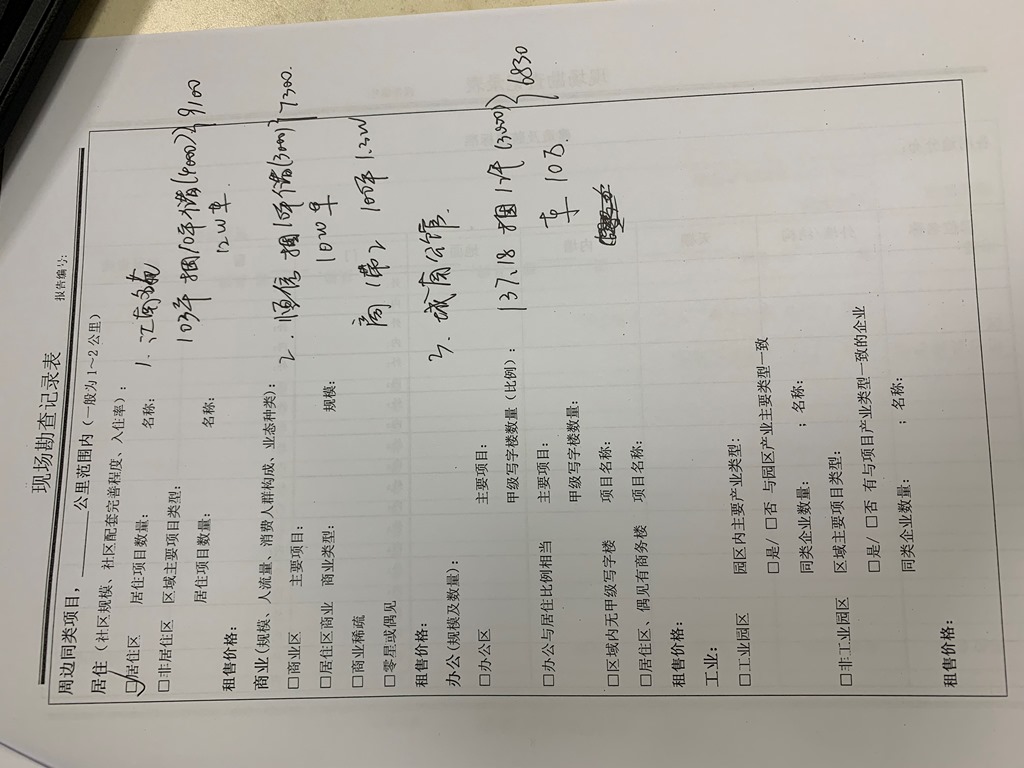 现场勘查记录表
报告编号:
周边同类项目，________公里范围内（一般为1～2公里）
居住（社区规模、社区配套完善程度、入住率）:
☑居住区 居住项目数量: 名称:
□非居住区 区域主要项目类型:
居住项目数量: 名称:
租售价格:
商业(规模、人流量、消费人群构成、业态种类):
□商业区 主要项目:
□居住区商业 商业类型: 规模:
□商业稀疏
□零星或偶见
租售价格:
办公(规模及数量):
□办公区 主要项目:
甲级写字楼数量(比例):
□办公与居住比例相当 主要项目:
甲级写字楼数量:
□区域内无甲级写字楼 项目名称:
□居住区、偶见有商务楼 项目名称:
租售价格:
工业:
□工业园区 园区内主要产业类型:
□是/□否 与园区产业主要类型一致
同类企业数量: ; 名称:
□非工业园区 区域主要项目类型:
□是/□否 有与项目产业类型一致的企业
同类企业数量: ; 名称:
租售价格:
1. 江南
103年 捆10年储(4000) } 9100
12W车.
2. 恒信 捆10年储(3000) } 7300.
10W车
100年 1.2W
3. 城南公馆.
137.18 捆 (3000) } 6830
车 10万.